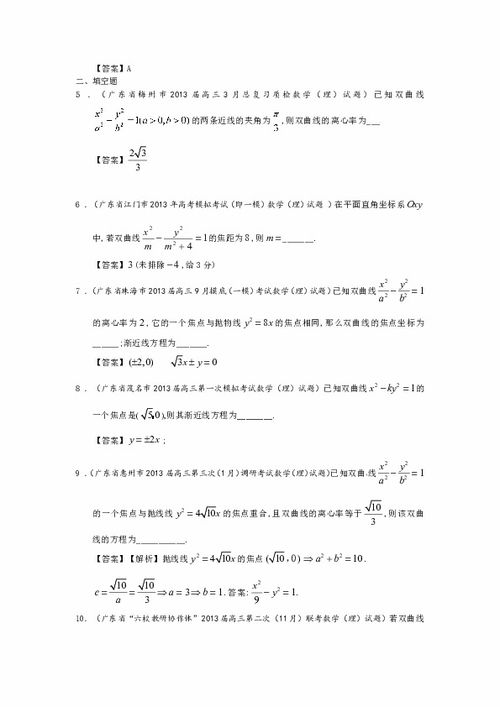 【答案】A
二、填空题
5 .(广东省梅州市2013届高三3月总复习质检数学(理)试题)已知双曲线
x²/a² - y²/b² = 1(a>0,b>0) 的两条近线的夹角为 π/3 ,则双曲线的离心率为___
【答案】2√3/3
6 .(广东省江门市2013年高考模拟考试(即一模)数学(理)试题 )在平面直角坐标系Oxy
中,若双曲线 x²/m - y²/(m²+4) = 1的焦距为8,则 m=_______.
【答案】3(未排除-4,给3分)
7 .(广东省珠海市2013届高三9月摸底(一模)考试数学(理)试题)已知双曲线 x²/a² - y²/b² = 1
的离心率为2,它的一个焦点与抛物线 y²=8x的焦点相同,那么双曲线的焦点坐标为
______;渐近线方程为_______.
【答案】(±2,0) √3x±y=0
8 .(广东省茂名市2013届高三第一次模拟考试数学(理)试题)已知双曲线x²-ky²=1的
一个焦点是(√5,0),则其渐近线方程为________.
【答案】y=±2x ;
9 .(广东省惠州市2013届高三第三次(1月)调研考试数学(理)试题)已知双曲线 x²/a² - y²/b² = 1
的一个焦点与抛线线 y²=4√10x 的焦点重合,且双曲线的离心率等于 √10/3 ,则该双曲
线的方程为___________.
【答案】【解析】抛线线 y²=4√10x的焦点 (√10,0) ⇒a²+b²=10.
c=√10/a=√10/3⇒a=3⇒b=1.答案: x²/9 - y²=1.
10.(广东省“六校教研协作体”2013届高三第二次(11月)联考数学(理)试题)若双曲线